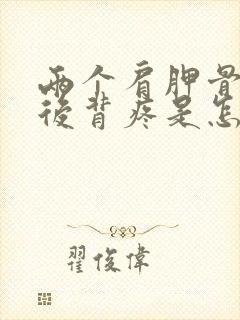 两个肩胛骨
後背疼是怎
翟俊偉